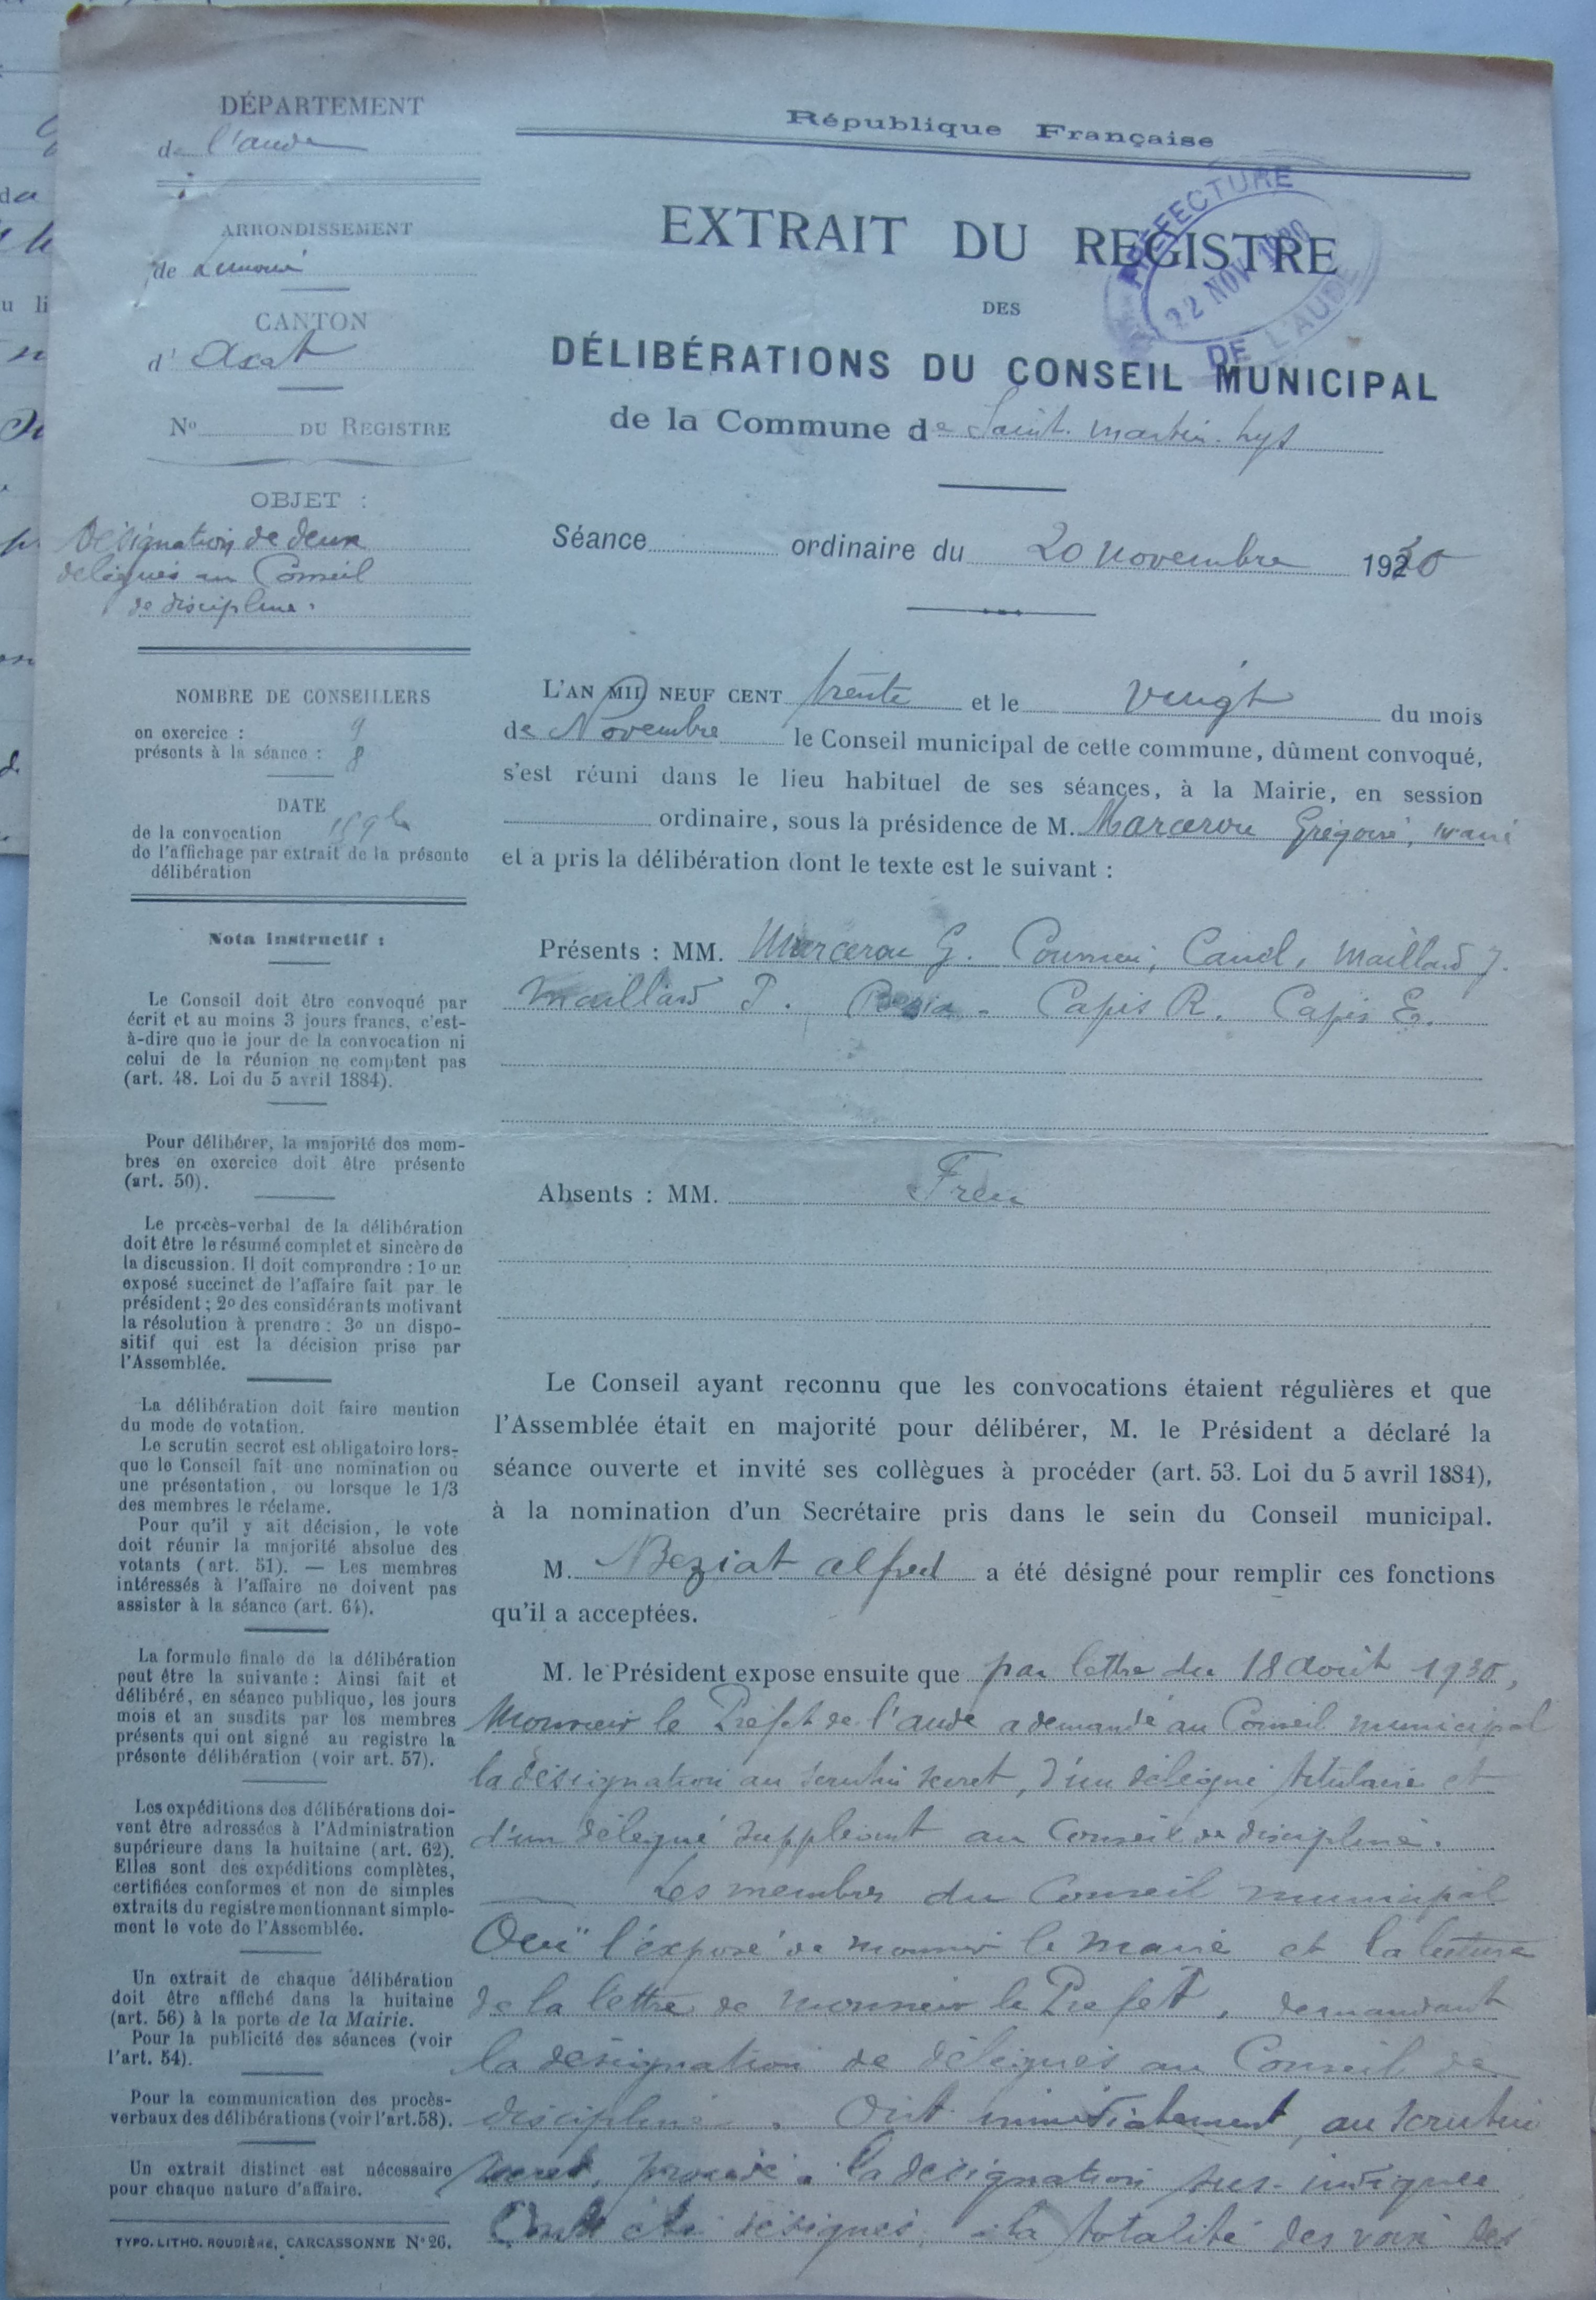 DÉPARTEMENT
de l'aude
ARRONDISSEMENT
de Limoux
CANTON
d' Axat
No DU REGISTRE
OBJET :
Désignation de deux
délégués au Conseil
de discipline.
NOMBRE DE CONSEILLERS
en exercice : 9
présents à la séance : 8
DATE
de la convocation 15 9b
de l'affichage par extrait de la présente
délibération
Nota instructif :
Le Conseil doit être convoqué par
écrit et au moins 3 jours francs, c'est-
à-dire que le jour de la convocation ni
celui de la réunion ne comptent pas
(art. 48. Loi du 5 avril 1884).
Pour délibérer, la majorité des mem-
bres en exercice doit être présente
(art. 50).
Le procès-verbal de la délibération
doit être le résumé complet et sincère de
la discussion. Il doit comprendre : 1o un
exposé succinct de l'affaire fait par le
président ; 2o des considérants motivant
la résolution à prendre : 3o un dispo-
sitif qui est la décision prise par
l'Assemblée.
La délibération doit faire mention
du mode de votation.
Le scrutin secret est obligatoire lors-
que le Conseil fait une nomination ou
une présentation, ou lorsque le 1/3
des membres le réclame.
Pour qu'il y ait décision, le vote
doit réunir la majorité absolue des
votants (art. 51). — Les membres
intéressés à l'affaire ne doivent pas
assister à la séance (art. 64).
La formule finale de la délibération
peut être la suivante : Ainsi fait et
délibéré, en séance publique, les jours
mois et an susdits par les membres
présents qui ont signé au registre la
présente délibération (voir art. 57).
Les expéditions des délibérations doi-
vent être adressées à l'Administration
supérieure dans la huitaine (art. 62).
Elles sont des expéditions complètes,
certifiées conformes et non de simples
extraits du registre mentionnant simple-
ment le vote de l'Assemblée.
Un extrait de chaque délibération
doit être affiché dans la huitaine
(art. 56) à la porte de la Mairie.
Pour la publicité des séances (voir
l'art. 54).
Pour la communication des procès-
verbaux des délibérations (voir l'art. 58).
Un extrait distinct est nécessaire
pour chaque nature d'affaire.
TYPO. LITHO. ROUDIÈRE, CARCASSONNE N° 26.
République Française
PRÉFECTURE
22 NOV 1930
DE L'AUDE
EXTRAIT DU REGISTRE
DES
DÉLIBÉRATIONS DU CONSEIL MUNICIPAL
de la Commune de Saint. Martin. Lys
Séance ordinaire du 20 novembre 1930
L'AN MIL NEUF CENT trente et le vingt du mois
de Novembre le Conseil municipal de cette commune, dûment convoqué,
s'est réuni dans le lieu habituel de ses séances, à la Mairie, en session
ordinaire, sous la présidence de M. Marcerou Grégoire, maire
et a pris la délibération dont le texte est le suivant :
Présents : MM. Marcerou G. Canel, Maillard J.
Maillard P. Capis R. Capis E.
Absents : MM. Freu
Le Conseil ayant reconnu que les convocations étaient régulières et que
l'Assemblée était en majorité pour délibérer, M. le Président a déclaré la
séance ouverte et invité ses collègues à procéder (art. 53. Loi du 5 avril 1884),
à la nomination d'un Secrétaire pris dans le sein du Conseil municipal.
M. Beziat alfred a été désigné pour remplir ces fonctions
qu'il a acceptées.
M. le Président expose ensuite que par lettre du 18 août 1930,
Monsieur le Préfet de l'aude a demandé au Conseil municipal
la désignation au scrutin secret, d'un délégué titulaire et
d'un délégué suppléant au Conseil de discipline.
Les membres du Conseil municipal
Ouï l'exposé de monsieur le maire et la lecture
de la lettre de monsieur le Préfet, demandant
la désignation de délégués au Conseil de
discipline. Ont immédiatement, au scrutin
secret, procédé à la désignation sus-indiquée
Ont été désignés, à la totalité des voix des